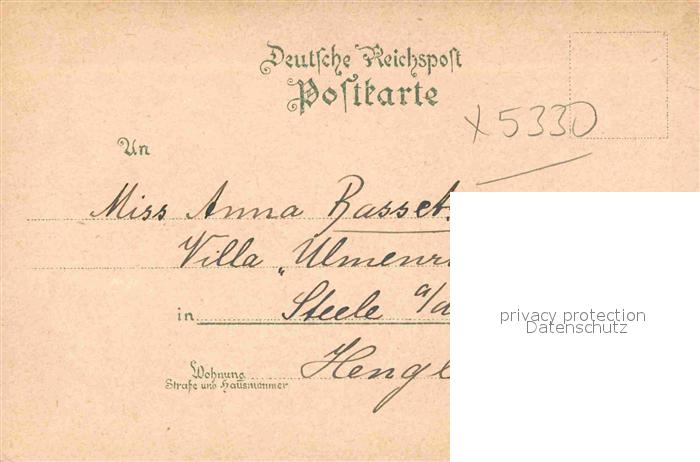 Deutsche Reichspost
Postkarte
x 5330
An
Miss Anna Basset
Villa „Ulmenr
in Steele a/d
Hengl
Wohnung
Straße und Hausnummer
privacy protection
Datenschutz